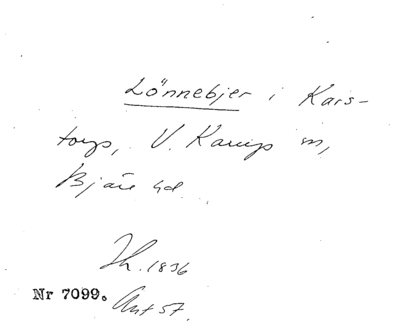 Lönnebjer i Kars-
torps, V. Karups sn,
Bjäre hd.
Th. 1836
Nr 7099. Ant 57.